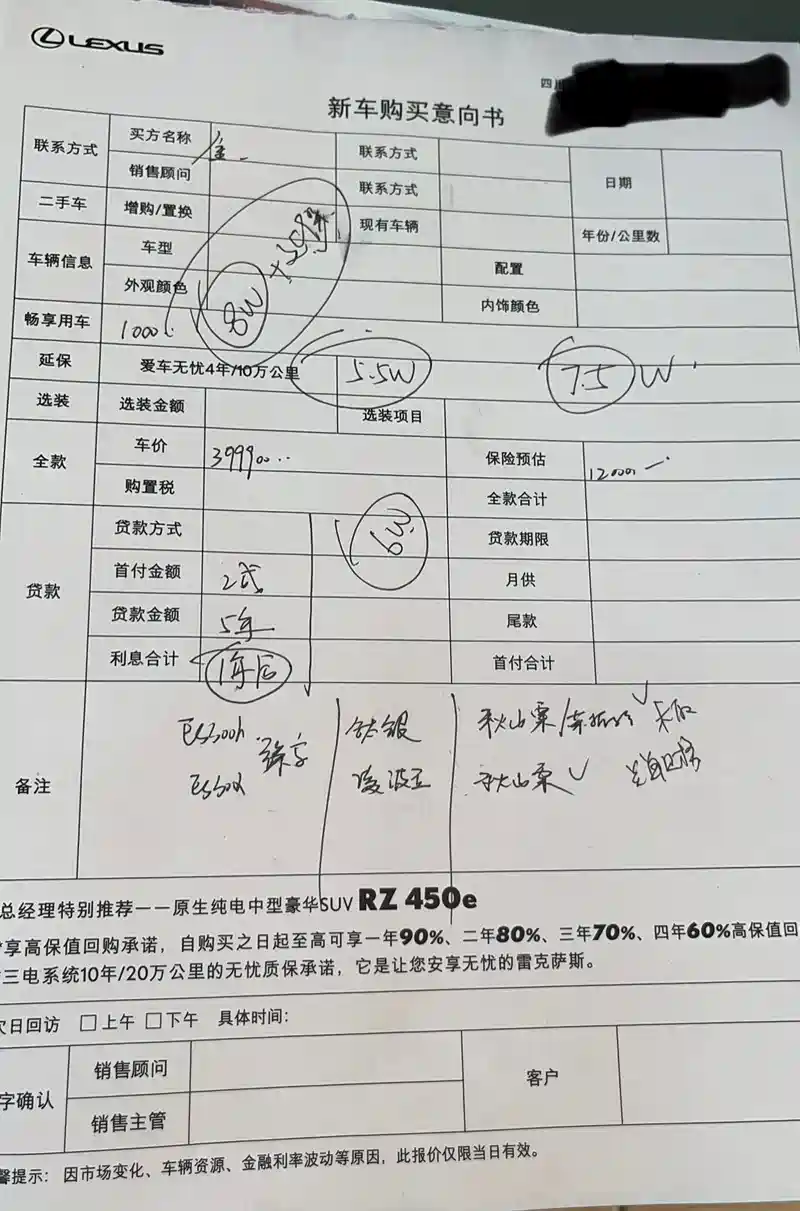 LEXUS
四川
新车购买意向书
联系方式 买方名称 联系方式 日期
销售顾问 联系方式
二手车 增购/置换 现有车辆 年份/公里数
车辆信息 车型 配置
外观颜色 8W 内饰颜色
畅享用车 1000
延保 爱车无忧4年/10万公里 5.5W 7.5W
选装 选装金额 选装项目
全款 车价 399900 保险预估 12000
购置税 全款合计
贷款 贷款方式 6W 贷款期限
首付金额 2成 月供
贷款金额 5年 尾款
利息合计 1年后 首付合计
备注 ES300h 钛银 秋山栗
凌波玉 秋山栗
总经理特别推荐——原生纯电中型豪华SUV RZ 450e
享高保值回购承诺，自购买之日起至高可享一年90%、二年80%、三年70%、四年60%高保值回
三电系统10年/20万公里的无忧质保承诺，它是让您安享无忧的雷克萨斯。
次日回访 □上午 □下午 具体时间：
字确认 销售顾问 客户
销售主管
馨提示： 因市场变化、车辆资源、金融利率波动等原因，此报价仅限当日有效。